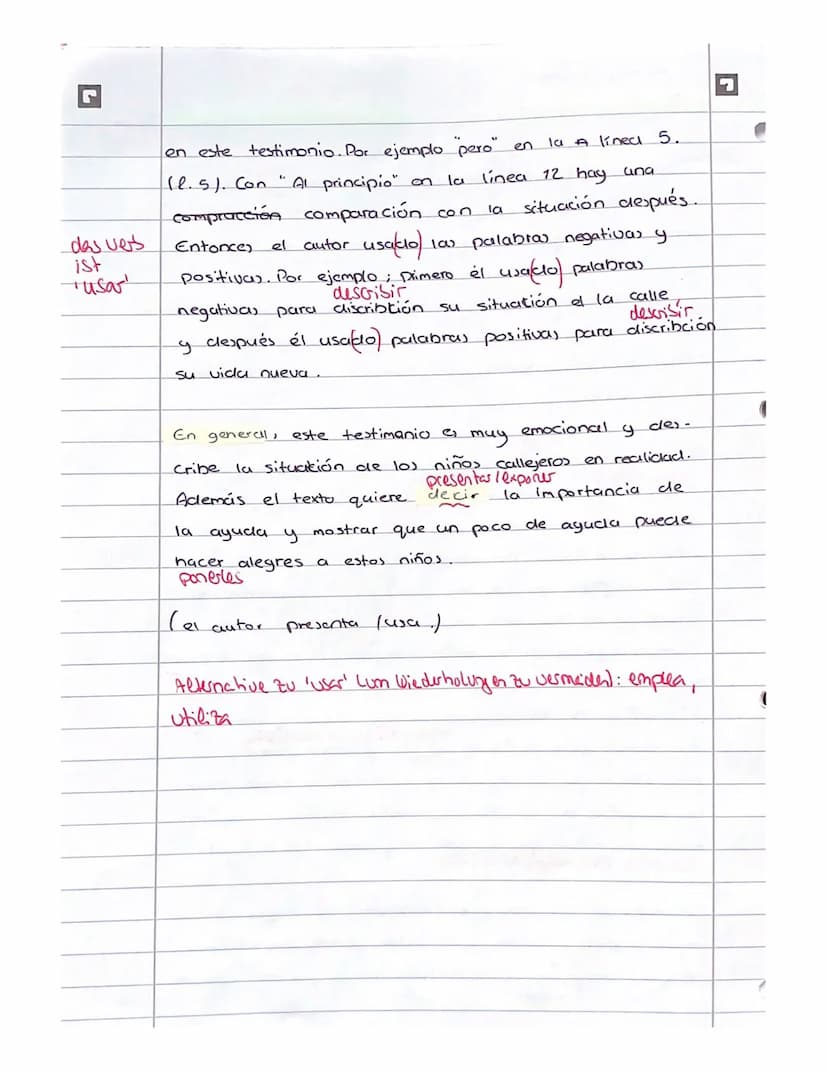 en este testimonio. Por ejemplo "pero" en la línea 5.
(l. 5). Con "Al principio" en la línea 12 hay una
compracción comparación con la situación después.
das verb
ist
'usar'
Entonces el autor usa(do) las palabras negativas y
positivas. Por ejemplo ; primero él usa(do) palabras
describir
negativas para discribtión su situación d la calle,
describir
y después él usa(do) palabras positivas para discribción
su vida nueva.
En general, este testimanio es muy emocional y des-
cribe la situatión de los niños callejeros en realidad.
presentar/exponer
Además el texto quiere decir la importancia de
la ayuda y mostrar que un poco de ayuda puede
hacer alegres a estos niños.
ponerles
(el autor presenta /usa.)
Alternative zu 'usar' (um Wiederholungen zu vermeiden): emplea,
utiliza